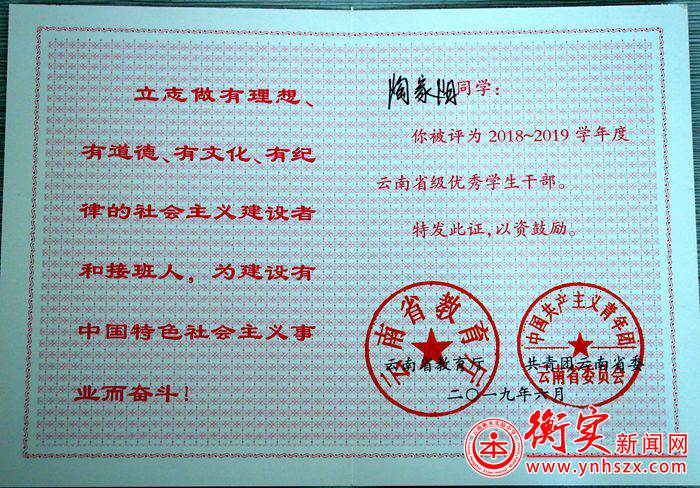 立志做有理想、
有道德、有文化、有纪
律的社会主义建设者
和接班人，为建设有
中国特色社会主义事
业而奋斗！
陶家湘同学：
你被评为2018~2019学年度
云南省级优秀学生干部。
特发此证，以资鼓励。
云南省教育厅
中国共产主义青年团
云南省委员会
云南省教育厅
共青团云南省委
二〇一九年六月
衡实新闻网
www.ynhszx.com